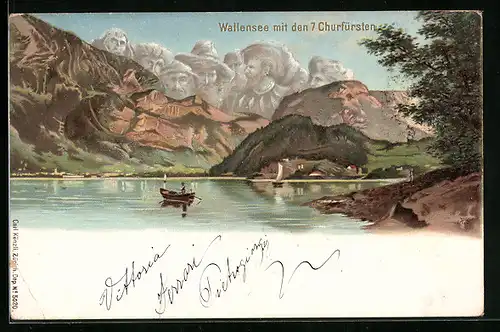 Wallensee mit den 7 Churfürsten
Carl Künzli, Zürich, Dep. No. 5020.
Vittoria
Ferrari
Pietrogiorgi